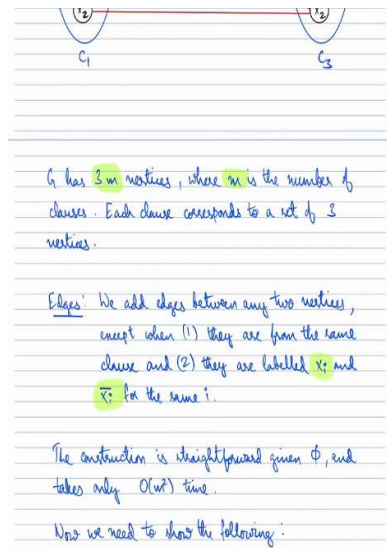 x2 x2
C1 C3
G has 3m vertices, where m is the number of
clauses. Each clause corresponds to a set of 3
vertices.
Edges: We add edges between any two vertices,
except when (1) they are from the same
clause and (2) they are labelled xi and
x̄i for the same i.
The construction is straightforward given ϕ, and
takes only O(m²) time.
Now we need to show the following: